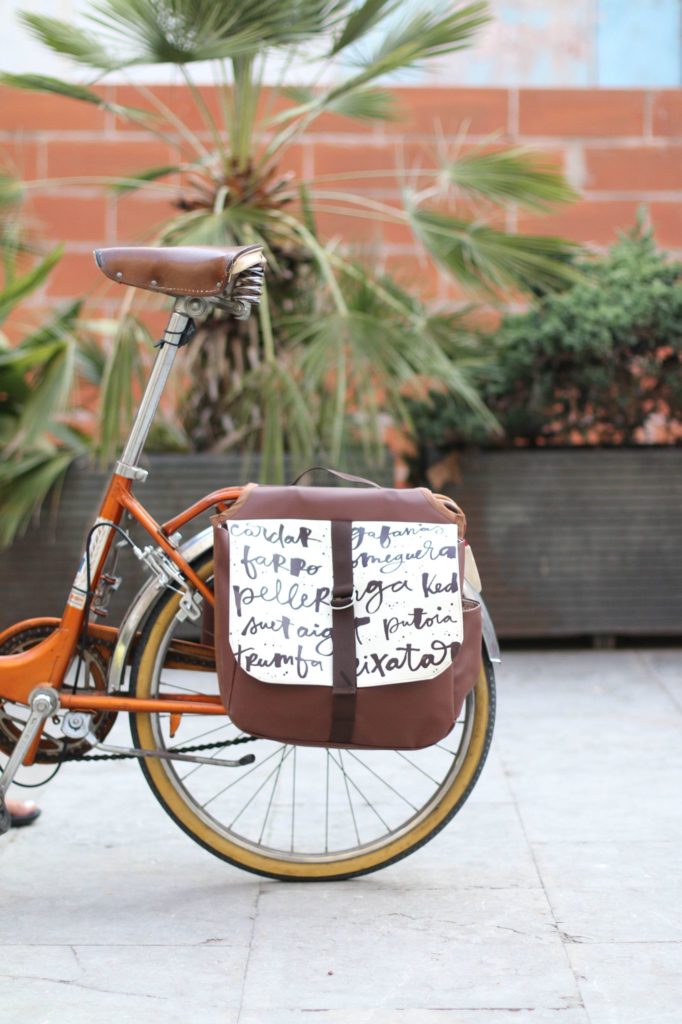 cardar gafanas
farro omeguera
pelleringa ked
suet aigt putoia
trumfa eixatar